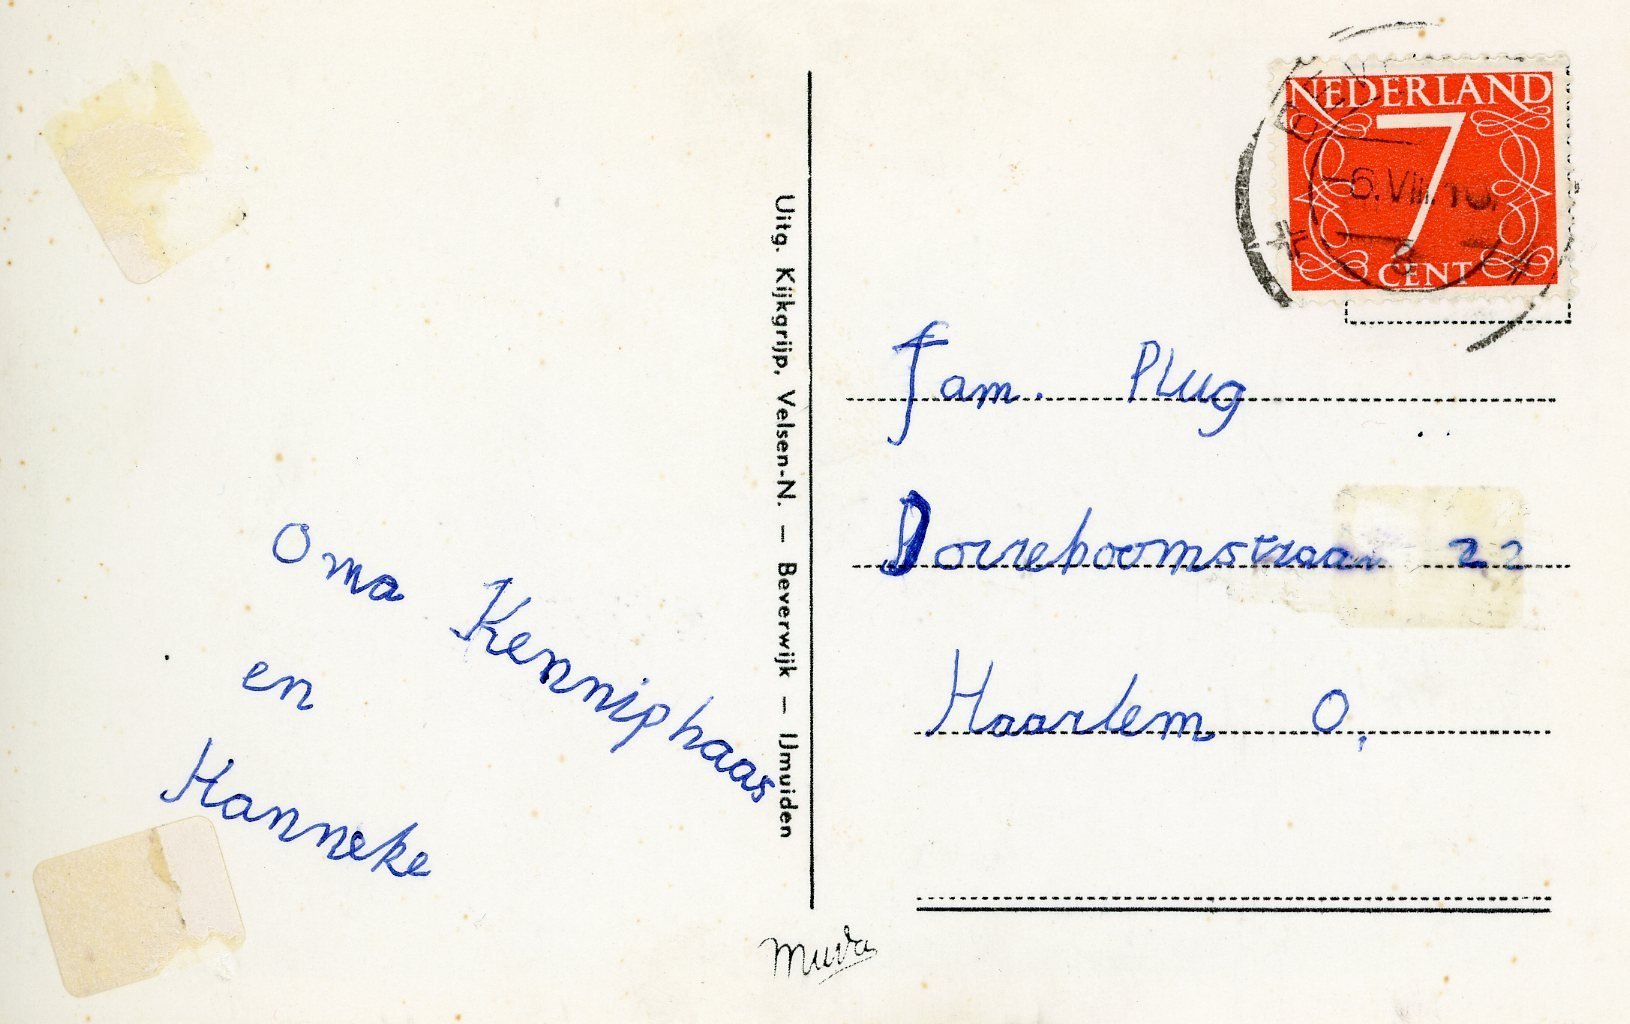 Oma Kenniphaas
en
Hanneke
Uitg. Kijkgrijp, Velsen-N. — Beverwijk — IJmuiden
Muva
NEDERLAND
7
CENT
6.VIII.
8
Fam. Plug
Dorreboomstraat 22
Haarlem O.